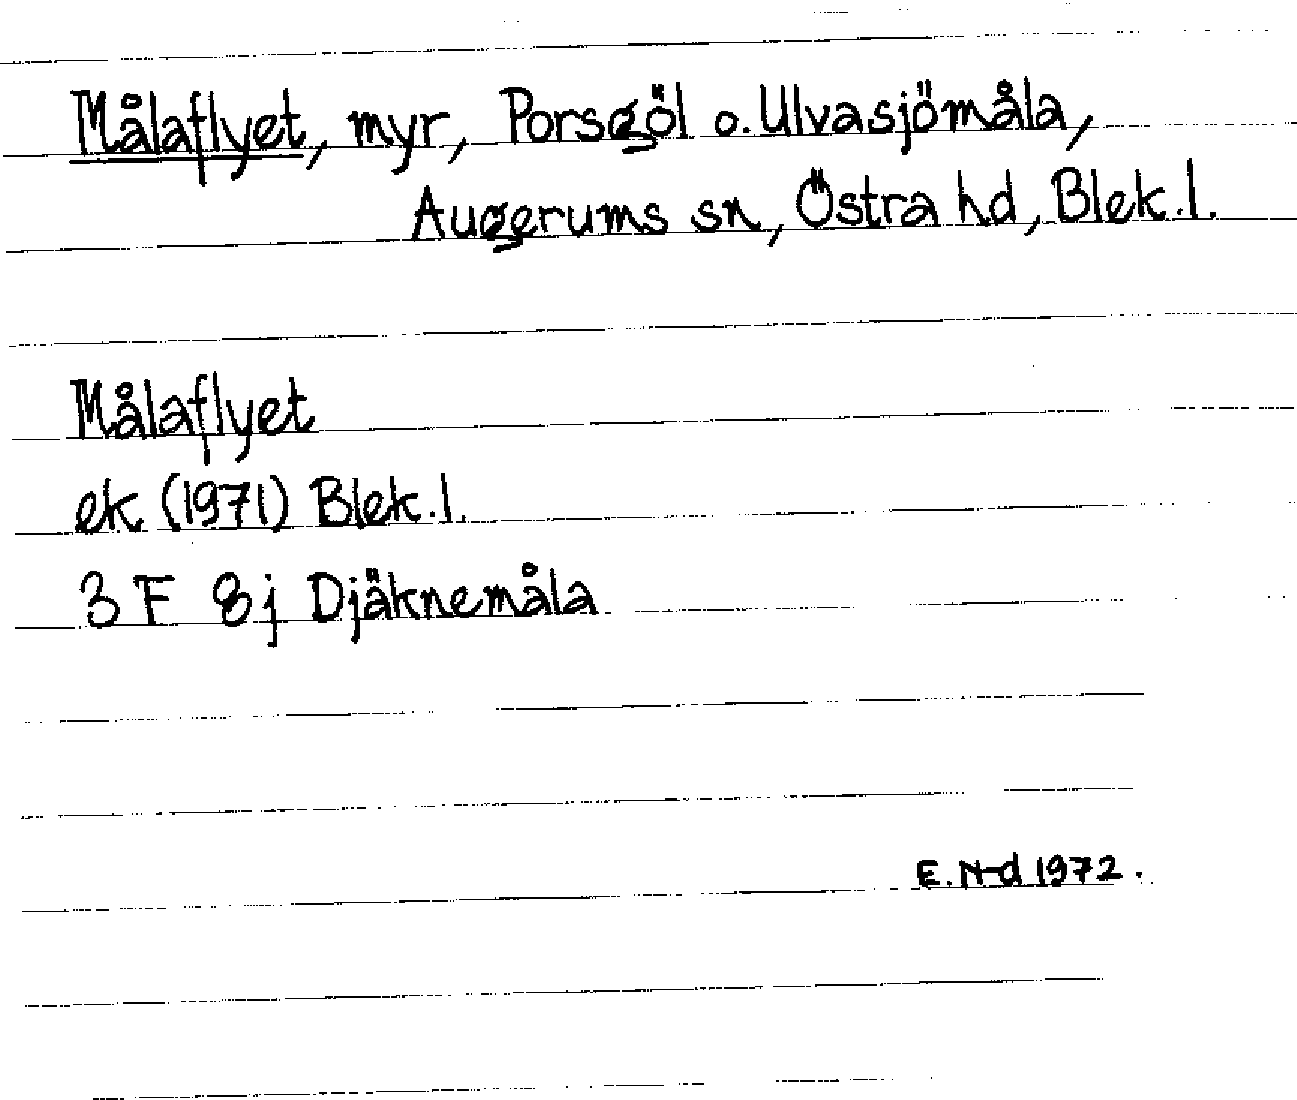 Målaflyet, myr, Porsgöl o. Ulvasjömåla,
Augerums sn, Östra hd, Blek. l.
Målaflyet
ek (1971) Blek. l.
3 F 8j Djäknemåla
E. N-d 1972.